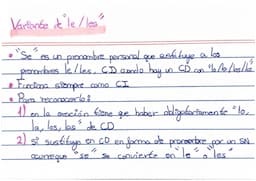 Variante de "le/les"
• "Se" es un pronombre personal que sustituye a los
pronombres le/les, CD cuando hay un CD con "la/lo/los/las"
• Funciona siempre como CI
• Para reconocerlo:
1) en la oración tiene que haber obligatoriamente "lo,
la, los, las" de CD
2) Si sustituyo en CD en forma de pronombre por un SN
aunque "se" se convierte en le o les